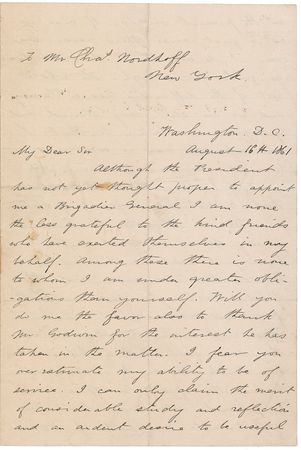 To Mr Chas. Nordhoff
New York.
Washington, D.C.
August 16th 1861
My Dear Sir
Although the President
has not yet thought proper to appoint
me a Brigadier General I am none
the less grateful to the kind friends
who have exerted themselves in my
behalf. Among these there is none
to whom I am under greater obli-
-gations than yourself. Will you
do me the favor also to thank
Mr Godwin for the interest he has
taken in the matter. I fear you
overestimate my ability to be of
service. I can only claim the merit
of considerable study and reflection
and an ardent desire to be useful